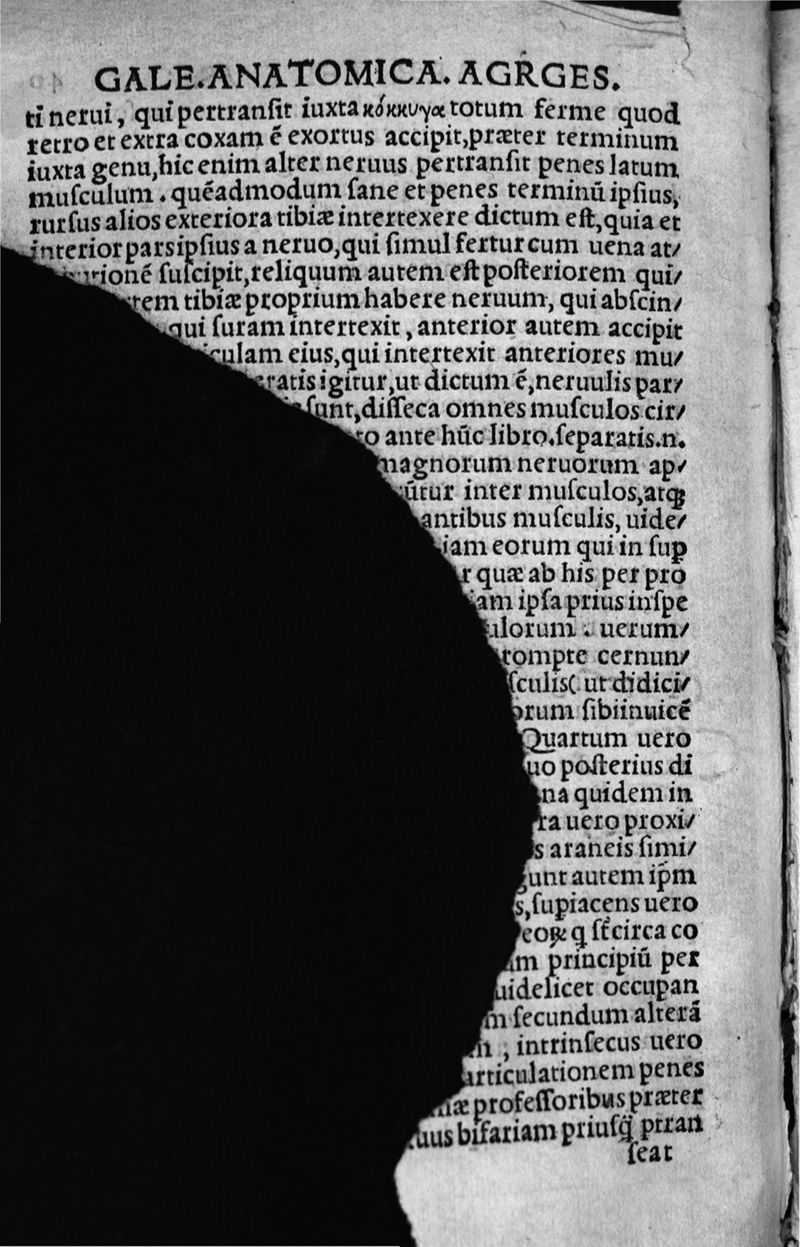 GALE.ANATOMICA. AGRGES.
ti nerui, qui pertranſit iuxta κόκκυγα totum ferme quod
retro et extra coxam ē exortus accipit,præter terminum
iuxta genu,hic enim alter neruus pertranſit penes latum
muſculum . quēadmodum ſane et penes terminū ipſius,
rurſus alios exteriora tibiæ intertexere dictum eſt,quia et
interior pars ipſius a neruo,qui ſimul fertur cum uena at/
ſuſcipit,reliquum autem eſt poſteriorem qui/
tibiæ proprium habere neruum, qui abſcin/
qui ſuram intertexit , anterior autem accipit
eius,qui intertexit anteriores mu/
igitur,ut dictum ē,neruulis par/
ſunt,diſſeca omnes muſculos cir/
ante hūc libro.ſeparatis.n.
magnorum neruorum ap/
inter muſculos,atq;
muſculis, uide/
eorum qui in ſup
quæ ab his per pro
ipſa prius inſpe
. uerum/
cernun/
( ut didici/
ſibiinuicē
Quartum uero
poſterius di
quidem in
uero proxi/
araneis ſimi/
autem ip̄m
ſupiacens uero
q ſt̄ circa co
principiū per
occupan
ſecundum alterā
, intrinſecus uero
penes
profeſſoribus præter
bifariam priuſq̄ ptran
ſeat